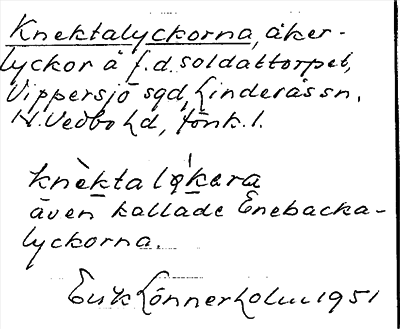 Knektalyckorna, åker-
lyckor å f.d. soldattorpet,
Vippersjö sgd, Linderås sn.
N. Vedbo hd, Jönk. l.
knèktalǫ́kara
även kallade Enebacka-
lyckorna.
Erik Lönnerholm 1951